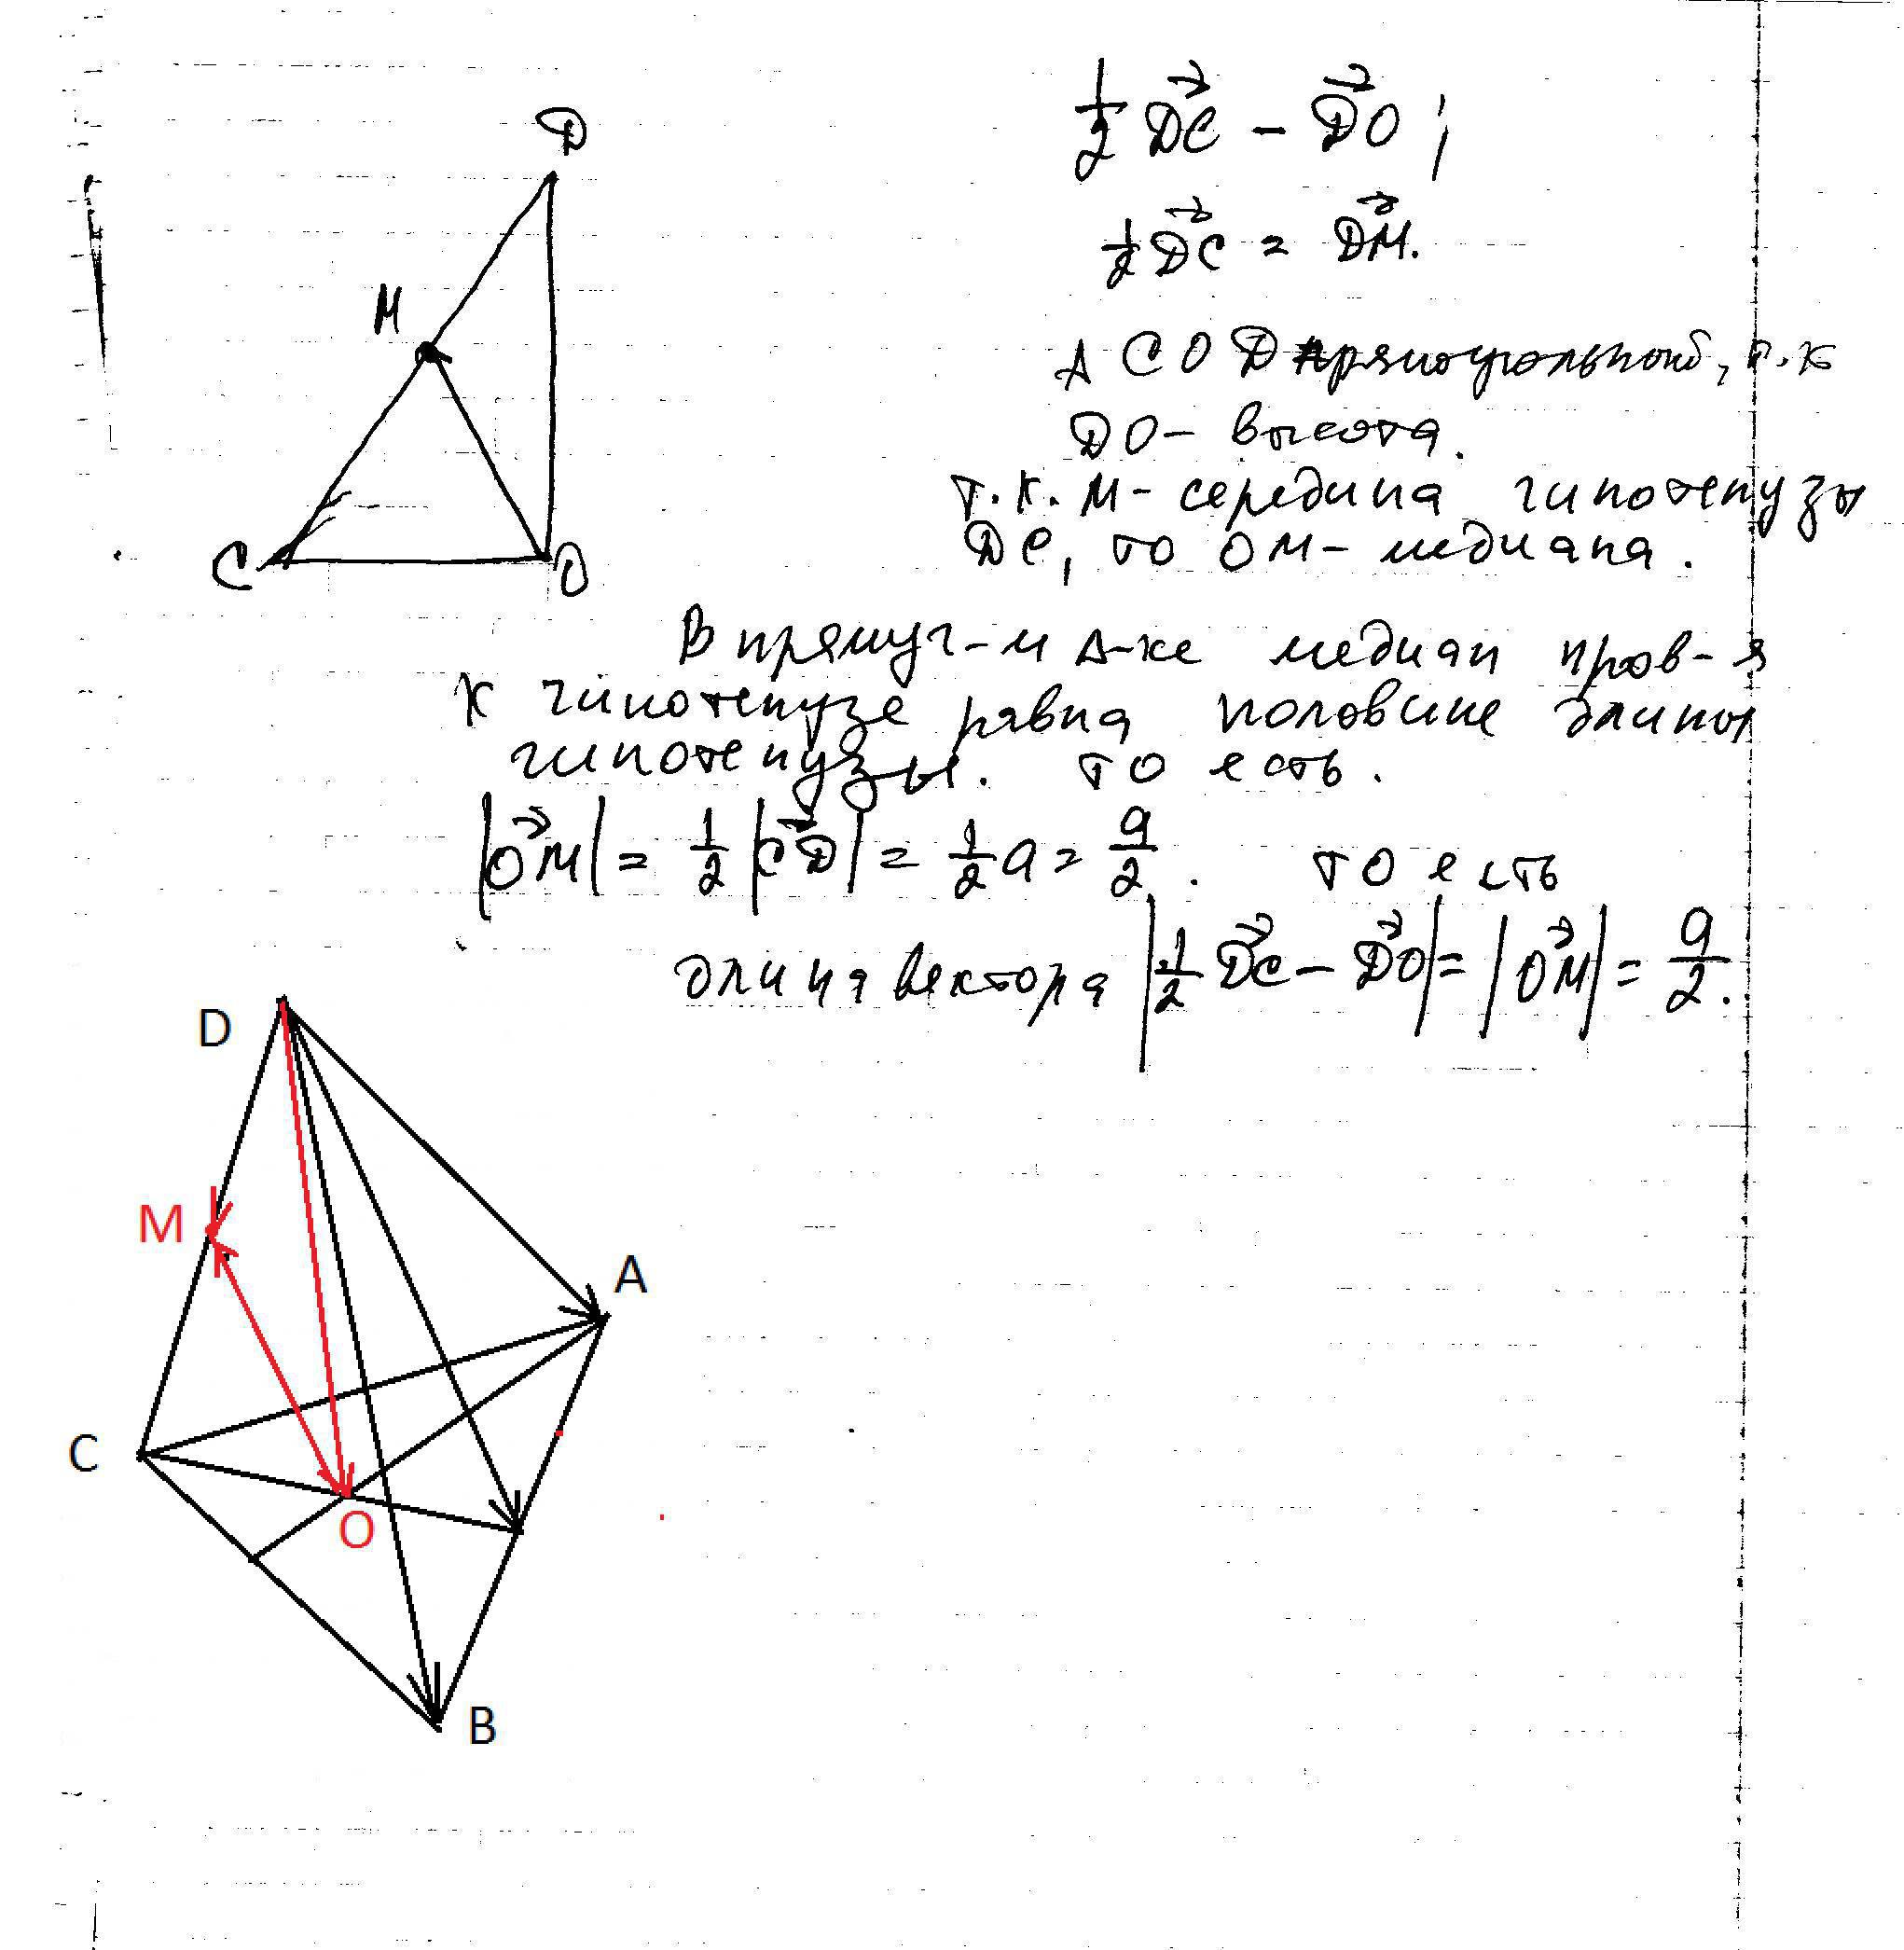 D
M
C
O
1/2 DC⃗ − DO⃗ ;
1/2 DC⃗ = DM⃗.
Δ COD прямоугольный, т.к
DO – высота.
т.к. M – середина гипотенузы
DC, то OM – медиана.
В прямуг-м Δ-ке медиан пров-я
к гипотенузе равна половине длины
гипотенузы. то есть.
|OM⃗| = 1/2 |CD⃗| = 1/2 a = a/2 . то есть
длина вектора |1/2 DC⃗ − DO⃗| = |OM⃗| = a/2.
D
M
A
C
O
B